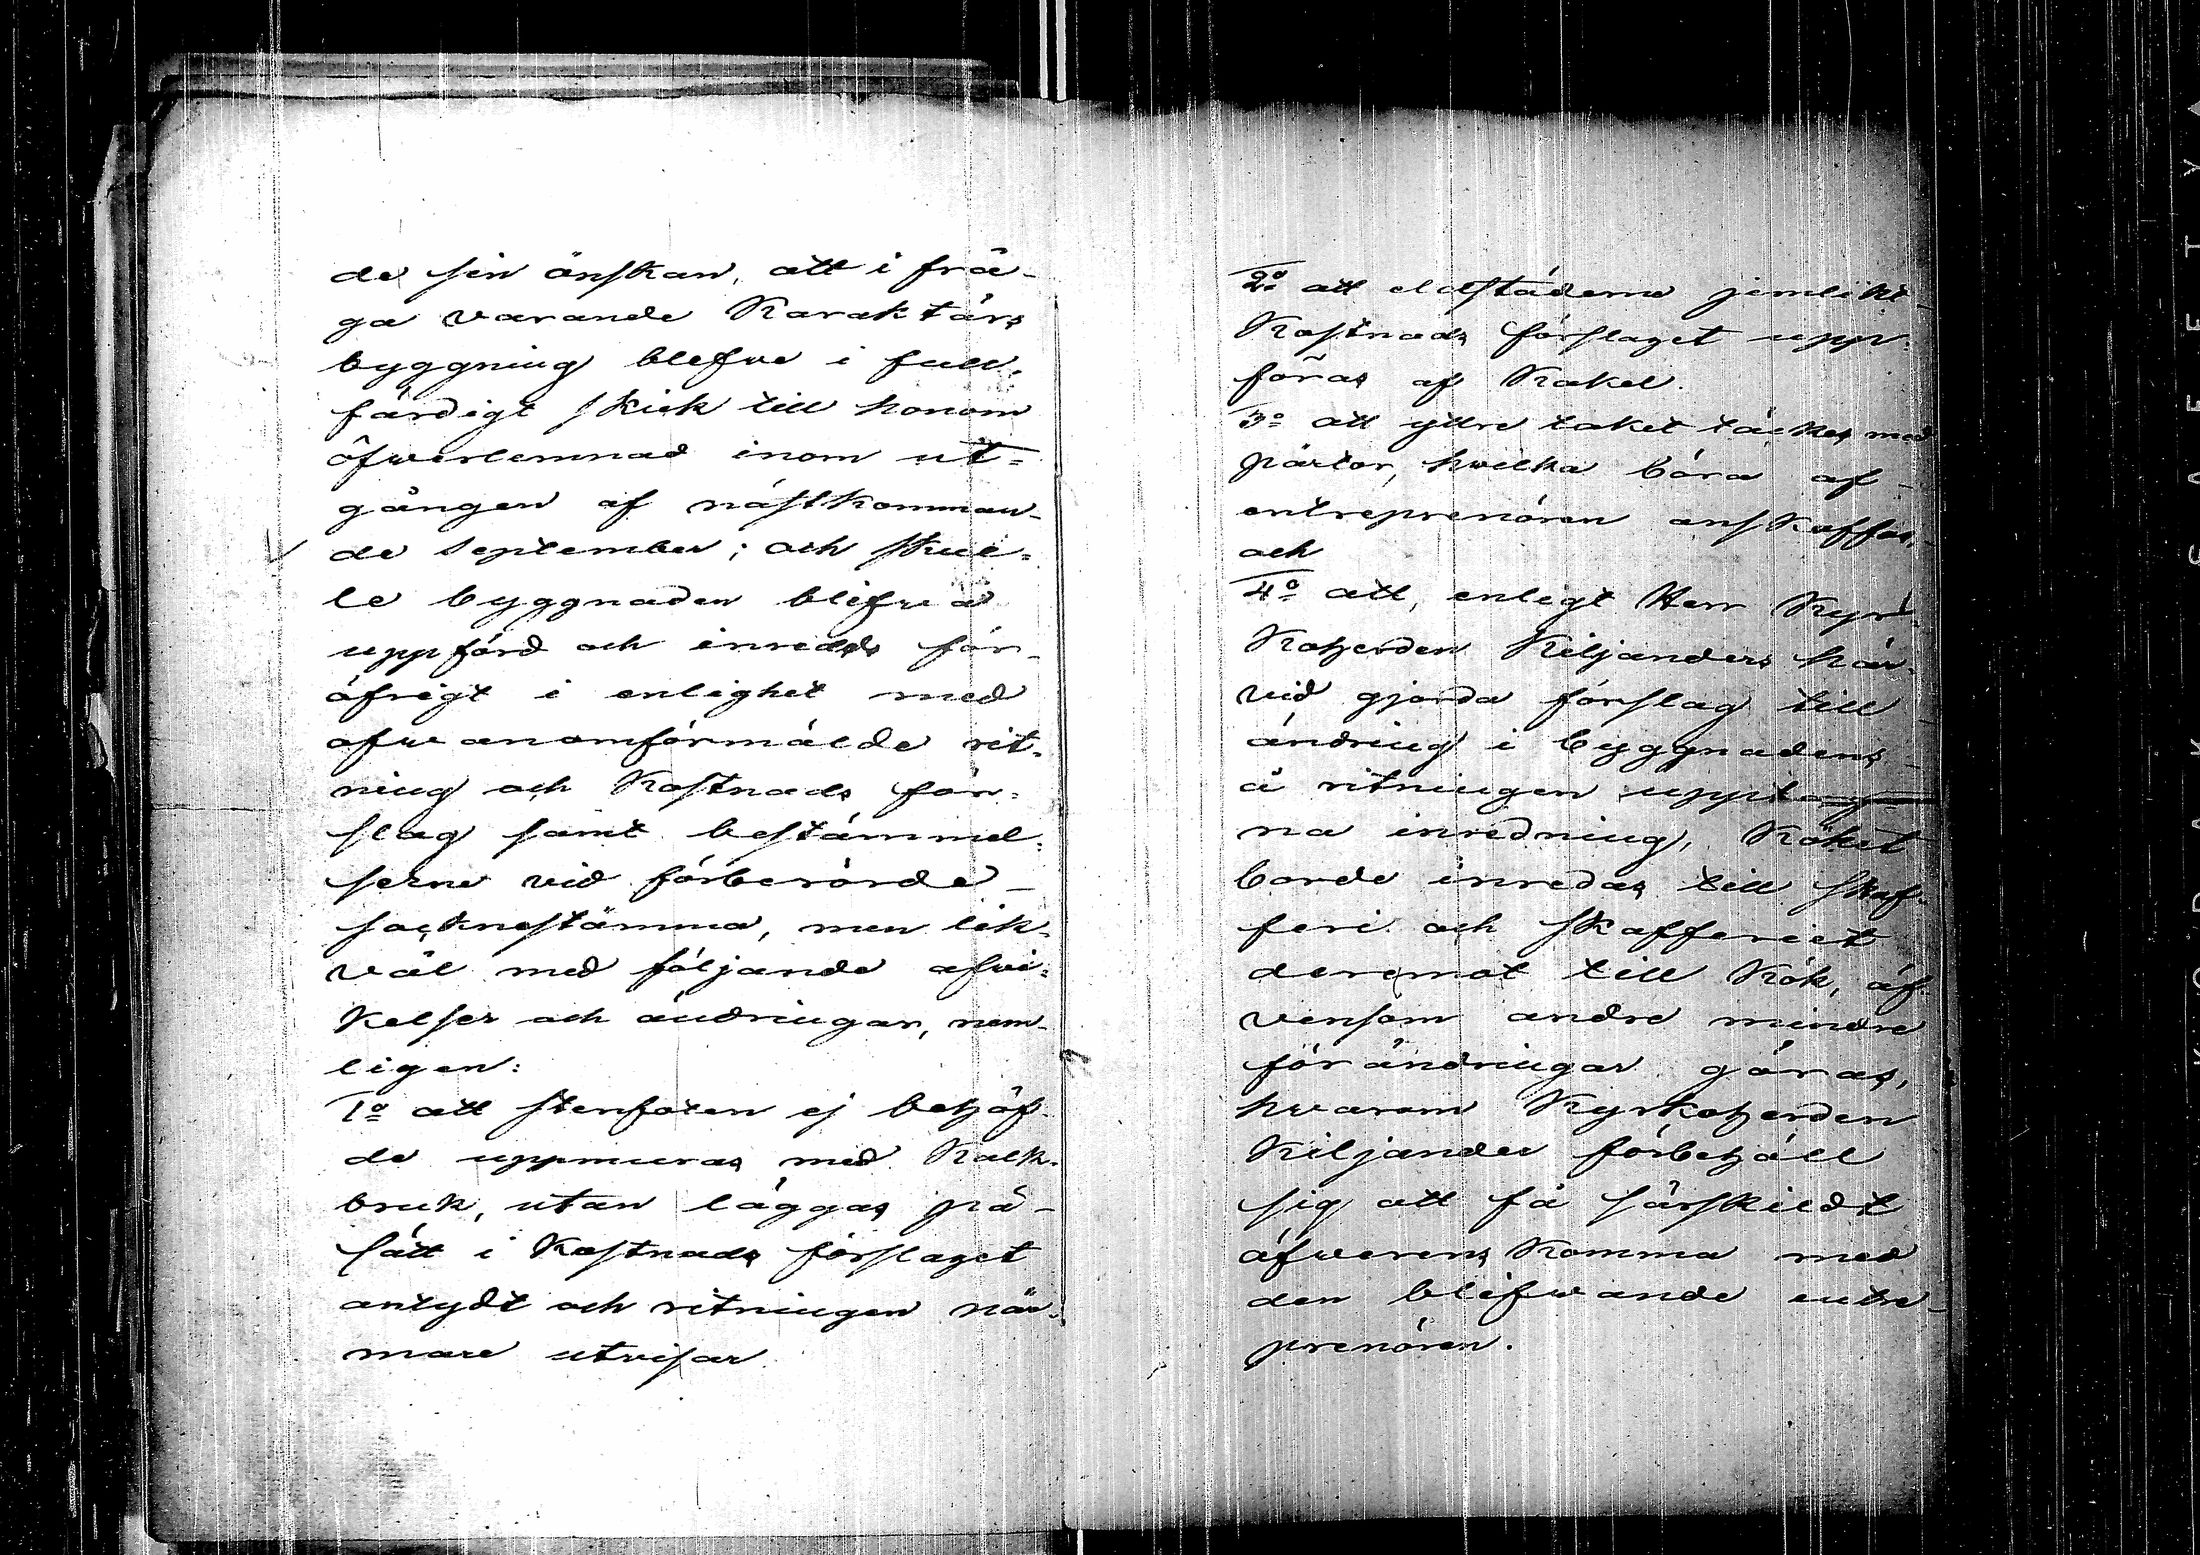 de sin önskan, att i frå-
ga varande Karaktärs
byggning blefve i full-
färdigt skick till honom
öfverlemnad inom ut-
gången af nästkomman-
de September; och skul-
le byggnaden blifva
uppförd och inredd för-
öfrigt i enlighet med
ofvanomförmälde rit-
ning och Kostnads för-
slag samt bestämmel-
serne vid förberörde
socknestämma, men lik-
väl med följande afvi-
kelser och ändringar, nem-
ligen:
1o att stenfoten ej behöf-
de uppmuras med Kalk-
bruk, utan läggas på
sätt i Kostnads förslaget
antydt och ritningen när-
mare utvisar
2o att eldstäderne jemlikt
Kostnads förslaget upp-
föras af Kakel.
3o att yttre taket täckes med
pärtor, hvilka böra af
entreprenören anskaffas,
och
4o att, enligt Herr Kyr-
koherden Kiljanders här-
vid gjorda förslag till
ändring i byggnadens
å ritningen upptag-
na inredning, Köket
borde inredas till skaf-
feri och skafferiet
deremot till Kök, äf-
vensom andre mindre
förändringar göras,
hvarom Kyrkoherden
Kiljander förbehöll
sig att få särskildt
öfverens komma med
den blifvande entre-
prenören.
SAFETY